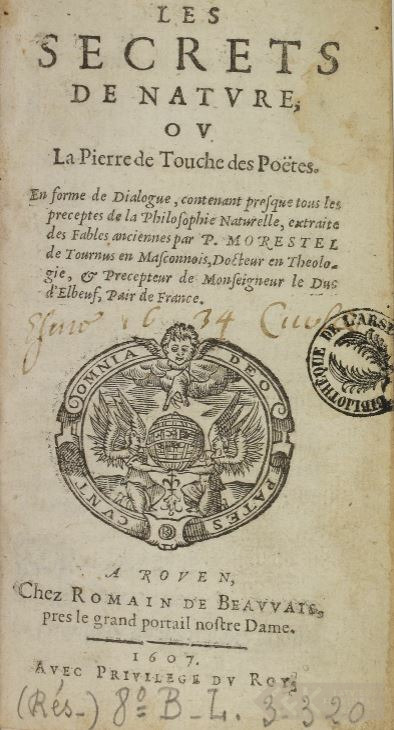 LES
SECRETS
DE NATVRE,
OV
La Pierre de Touche des Poëtes.
En forme de Dialogue, contenant presque tous les
preceptes de la Philosophie Naturelle, extraite
des Fables anciennes par P. MORESTEL
de Tournus en Masconnois, Docteur en Theolo-
gie, & Precepteur de Monseigneur le Duc
d'Elbeuf, Pair de France.
1634
OMNIA DEO
PATES CVNT
BIBLIOTHEQUE DE L'ARSE
A ROVEN,
Chez ROMAIN DE BEAVVAIS,
pres le grand portail nostre Dame.
1607.
AVEC PRIVILEGE DV ROY.
(Rés.) 8º B. L. 33320